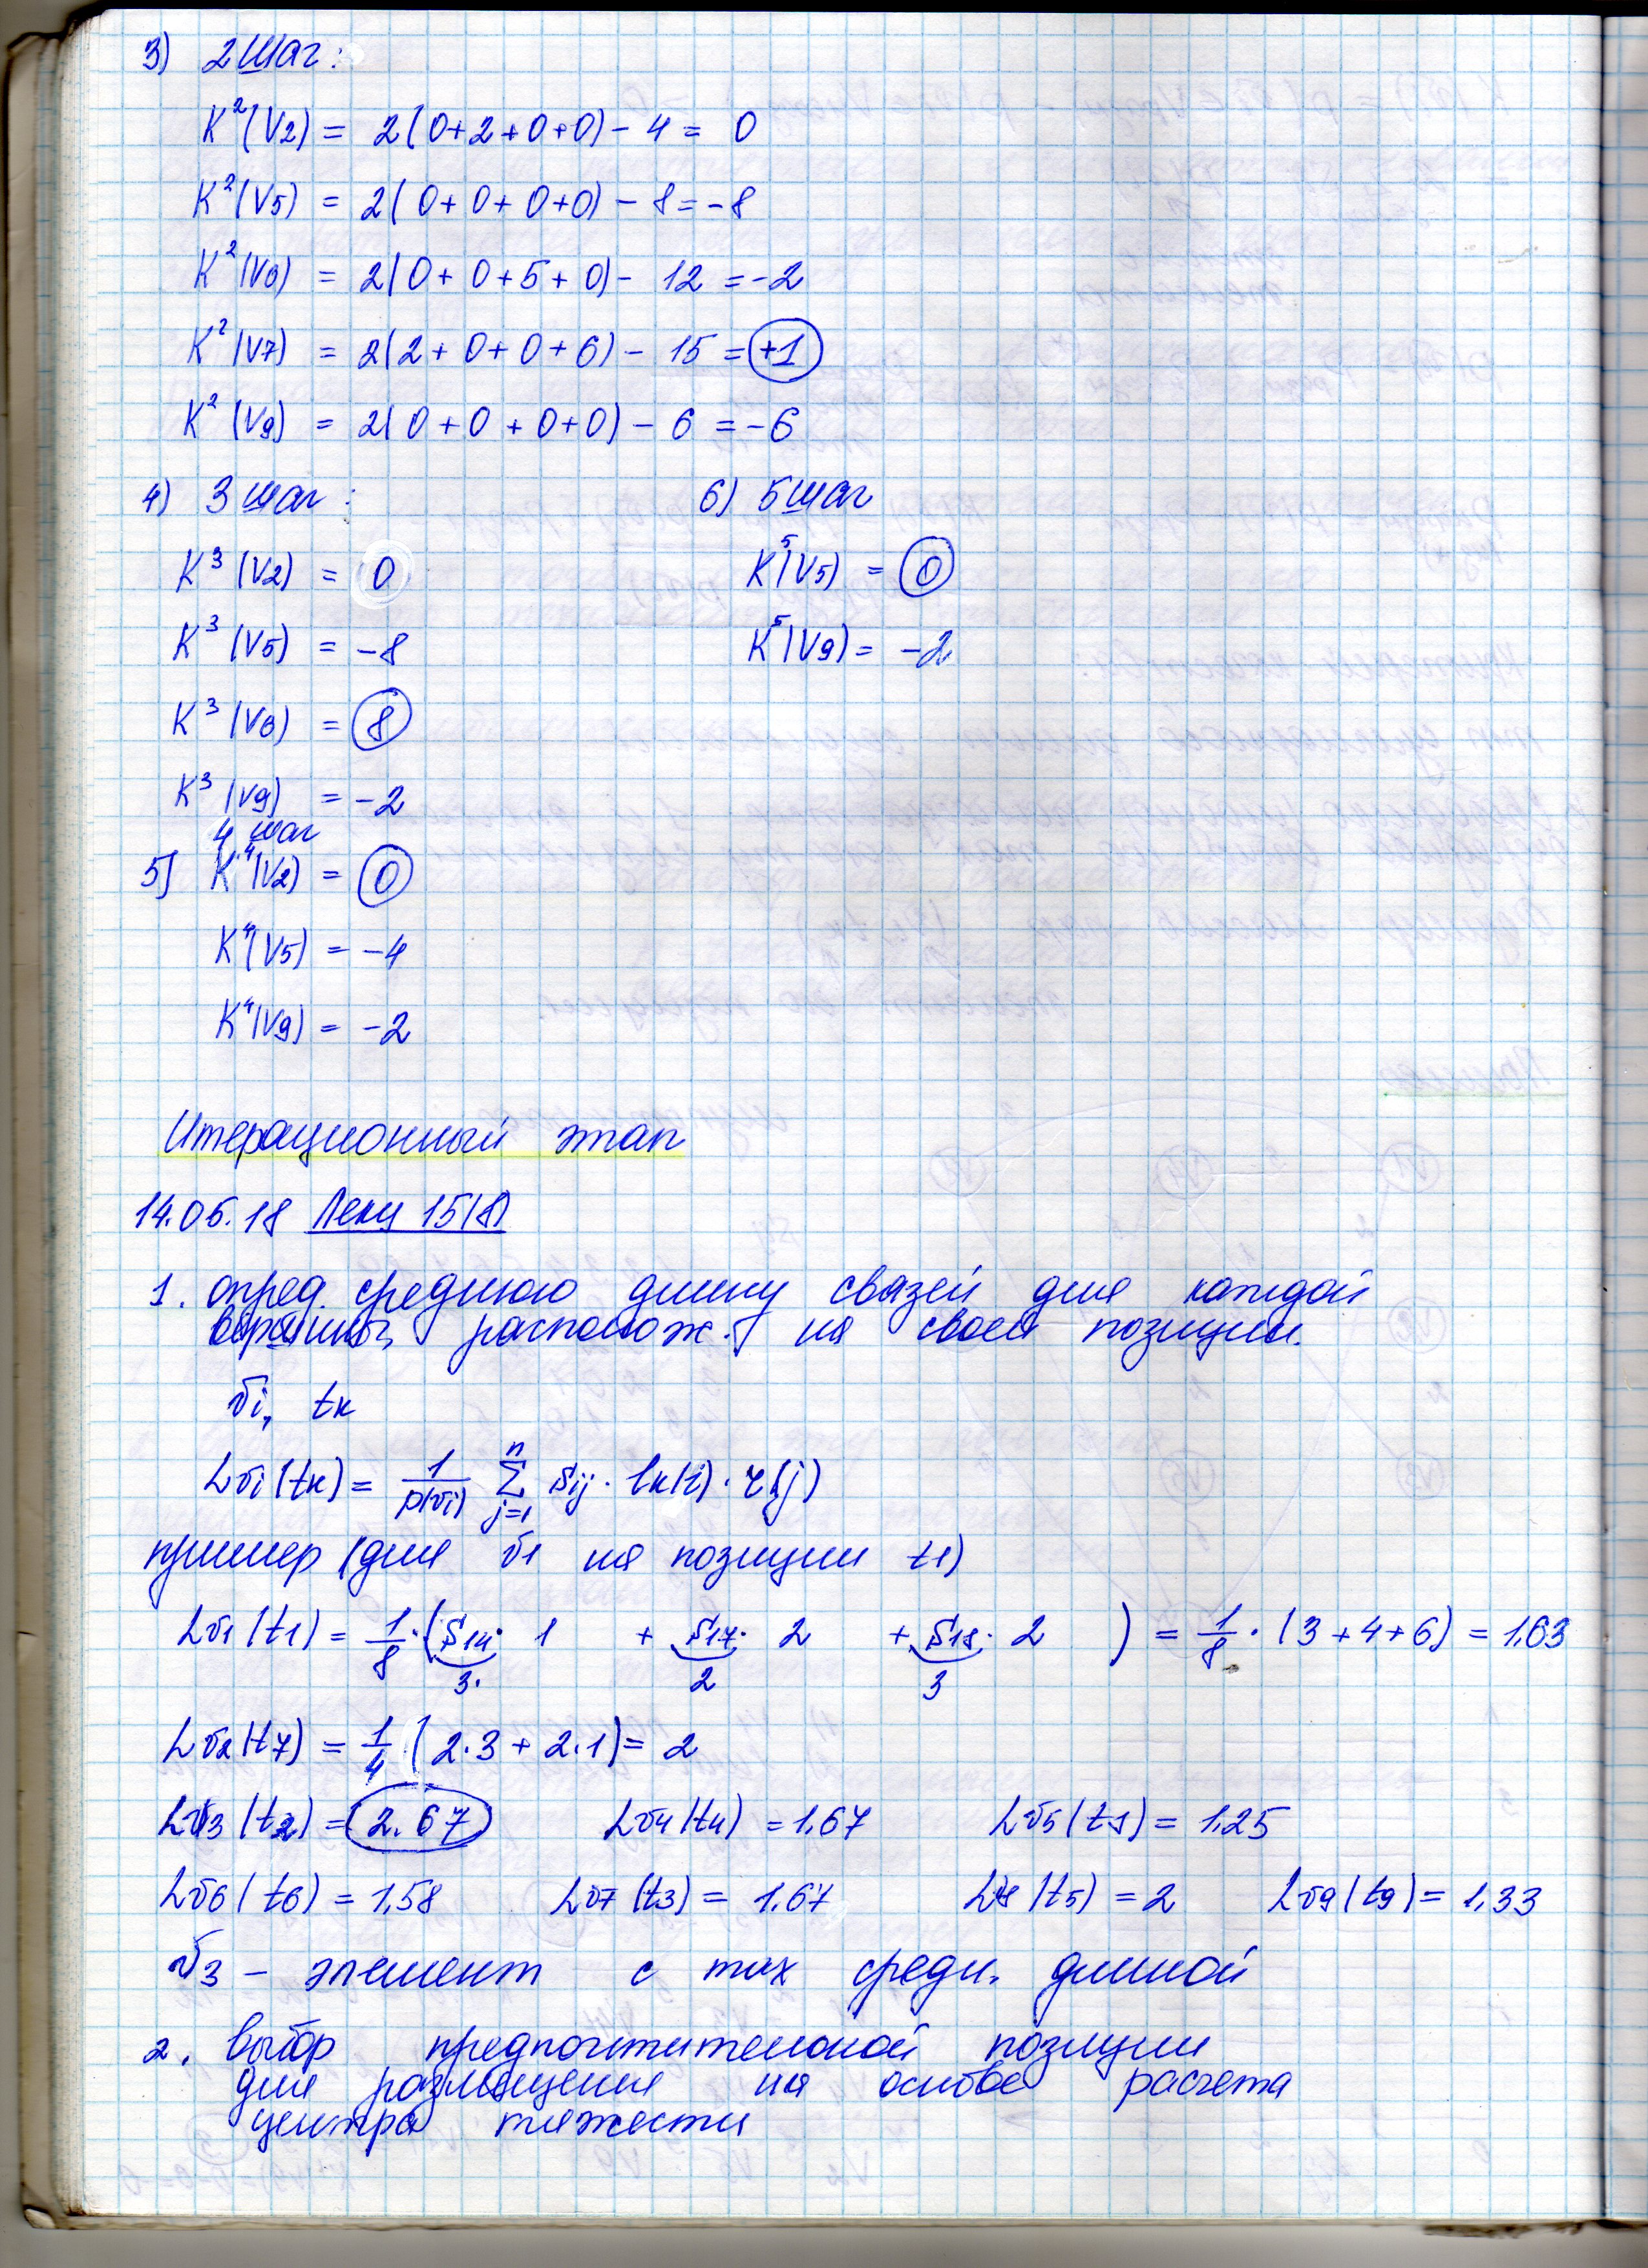 3) 2 Шаг:
K²(V2) = 2(0+2+0+0) - 4 = 0
K²(V5) = 2(0+0+0+0) - 8 = -8
K²(V6) = 2(0+0+5+0) - 12 = -2
K²(V7) = 2(2+0+0+6) - 15 = +1
K²(V9) = 2(0+0+0+0) - 6 = -6
4) 3 шаг:
K³(V2) = 0
K³(V5) = -8
K³(V6) = 8
K³(V9) = -2
4 шаг
5) K⁴(V2) = 0
K⁴(V5) = -4
K⁴(V9) = -2
6) 5 шаг
K⁵(V5) = 0
K⁵(V9) = -2
Итерационный этап
14.05.18 Лекц 15(8)
1. опред. среднюю длину связей для каждой
вершины, располож. на своей позиции.
vi, tk
Lvi(tk) = 1/p(vi) n Σ j=1 Sij · lk(i) · r(j)
пример (для v1 на позиции t1)
Lv1(t1) = 1/8 · (S14 · 1 + S17 · 2 + S18 · 2) = 1/8 · (3+4+6) = 1.63
3. 2 3
Lv2(t7) = 1/4 (2·3 + 2·1) = 2
Lv3(t2) = 2.67 Lv4(t4) = 1.67 Lv5(t8) = 1.25
Lv6(t6) = 1.58 Lv7(t3) = 1.67 Lv8(t5) = 2 Lv9(t9) = 1.33
v3 - элемент с max средн. длиной
2. выбор предпочтительной позиции
для размещения на основе расчета
центра тяжести